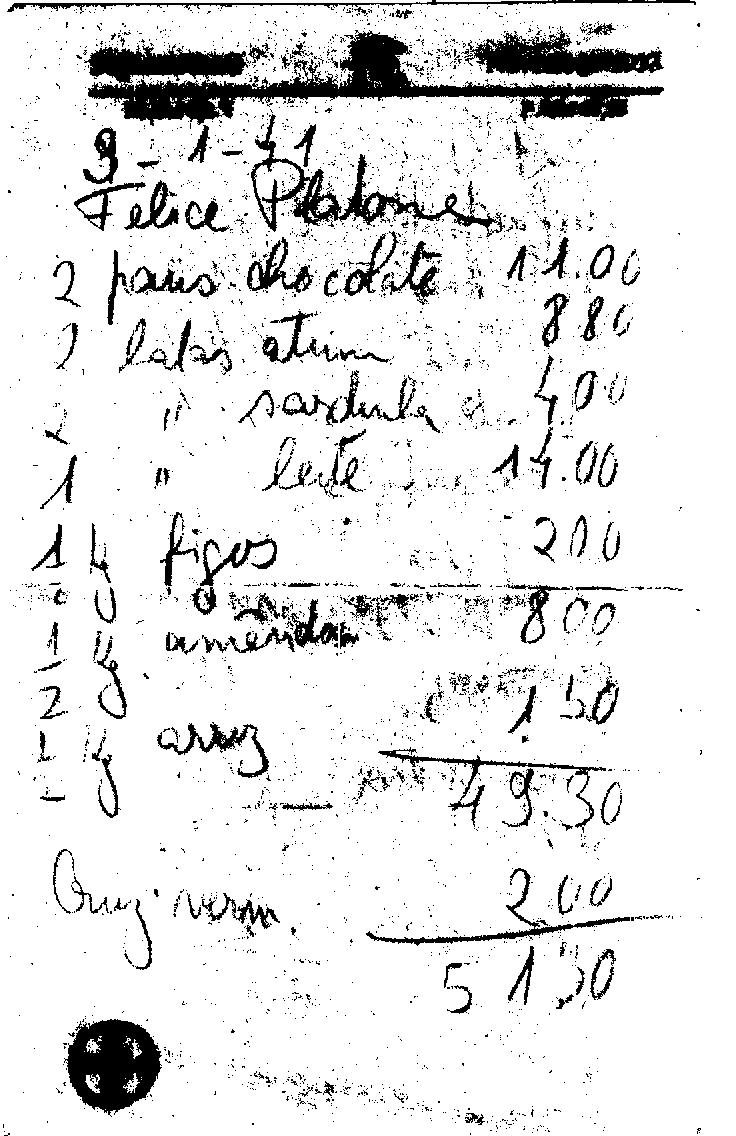 9-1-41
Felice Platone
2 paus chocolate 11.00
2 latas atum 880
2 " sardinha 400
1 " leite 14.00
1 kg figos 200
1/2 kg amêndoa 800
1/2 kg arroz 150
49.30
Cruz verm. 200
5130